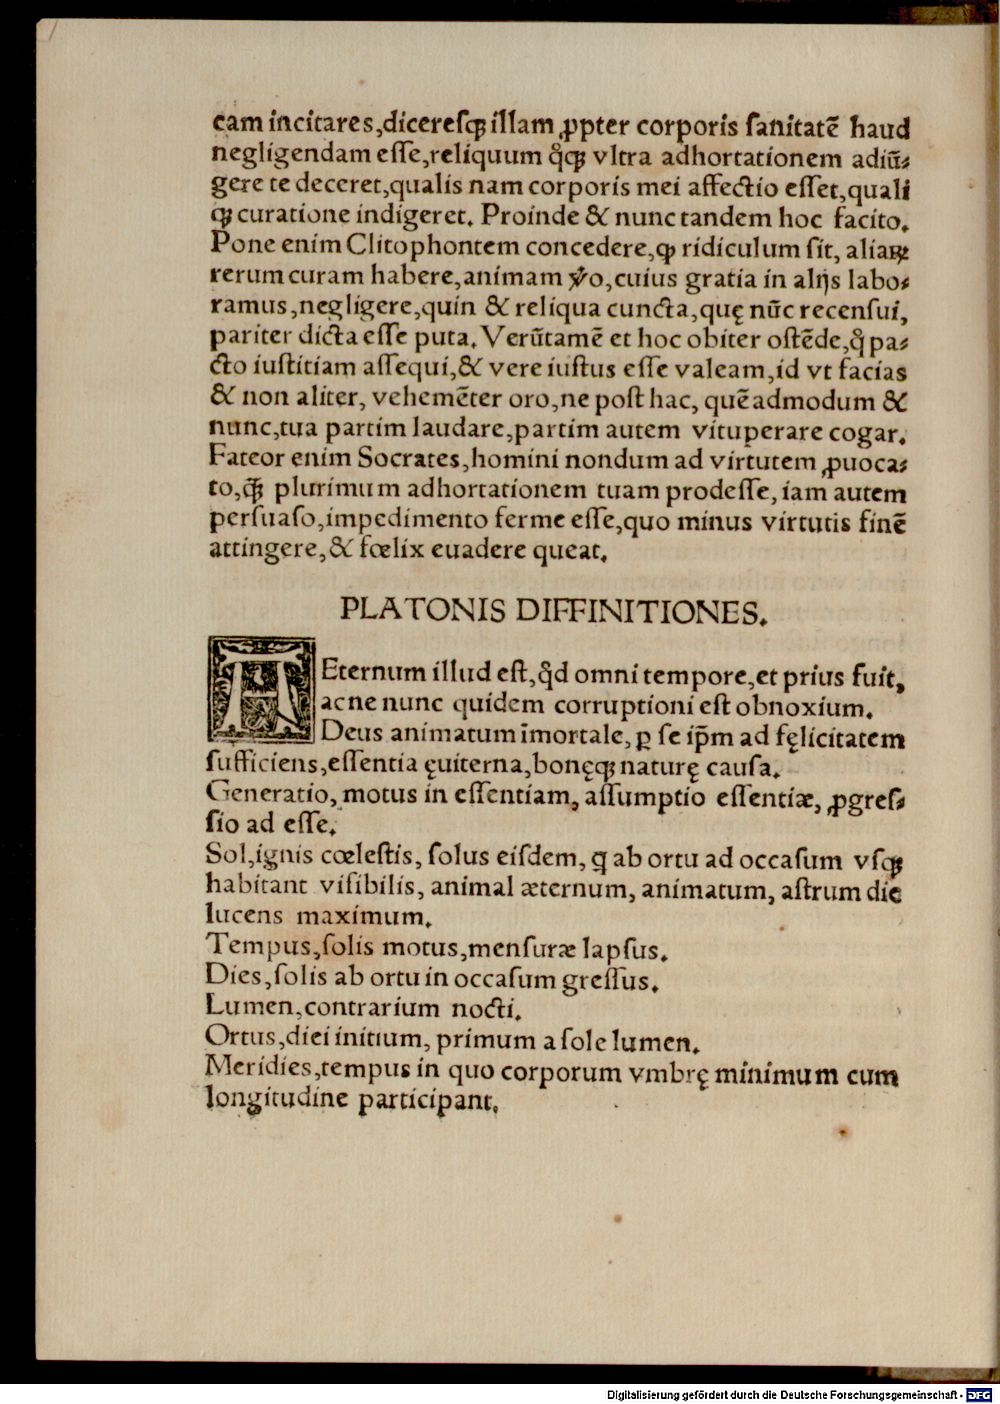 eam incitares,diceresqꝫ illam ꝓpter corporis sanitatē haud
negligendam esse,reliquum qͦqꝫ vltra adhortationem adiū⸗
gere te deceret,qualis nam corporis mei affectio esset,quali
qꝫ curatione indigeret. Proinde & nunc tandem hoc facito.
Pone enim Clitophontem concedere,ꝙ ridiculum sit, aliaꝝ
rerum curam habere,animam ꝟo,cuius gratia in alijs labo⸗
ramus,negligere,quin & reliqua cuncta,quę nūc recensui,
pariter dicta esse puta. Verūtamē et hoc obiter ostēde,qͦ pa⸗
cto iustitiam assequi,& vere iustus esse valeam,id vt facias
& non aliter, vehemēter oro,ne post hac, quēadmodum &
nunc,tua partim laudare,partim autem vituperare cogar.
Fateor enim Socrates,homini nondum ad virtutem ꝓuoca⸗
to,qꝫ̄ plurimum adhortationem tuam prodesse, iam autem
persuaso,impedimento ferme esse,quo minus virtutis finē
attingere,& fœlix euadere queat.
PLATONIS DIFFINITIONES.
AEternum illud est,qd̛ omni tempore,et prius fuit,
ac ne nunc quidem corruptioni est obnoxium.
Deus animatum īmortale, ꝑ se ip̄m ad fęlicitatem
sufficiens,essentia ęuiterna,bonęqꝫ naturę causa.
Generatio, motus in essentiam, assumptio essentiæ, ꝓgres⸗
sio ad esse.
Sol,ignis cœlestis, solus eisdem, ꝗ ab ortu ad occasum vsqꝫ
habitant visibilis, animal æternum, animatum, astrum die
lucens maximum.
Tempus,solis motus,mensuræ lapsus.
Dies,solis ab ortu in occasum gressus.
Lumen,contrarium nocti.
Ortus,diei initium, primum a sole lumen.
Meridies,tempus in quo corporum vmbrę minimum cum
longitudine participant.
Digitalisierung gefördert durch die Deutsche Forschungsgemeinschaft - DFG